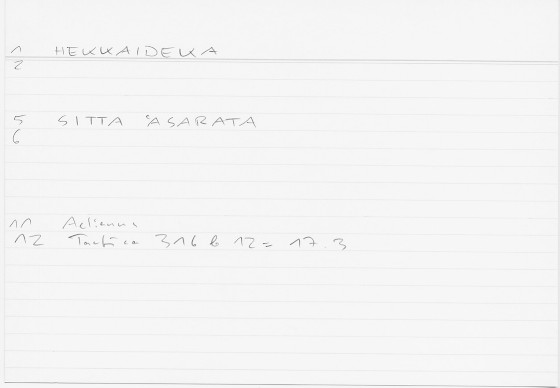 1 HEKKAIDEKA
2
5 SITTA ʿASARATA
6
11 Aelianus
12 Tactica 316 b 12 = 17.3